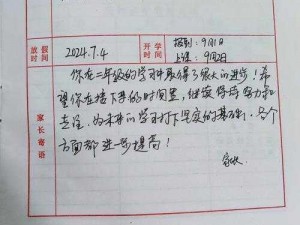 放假时间 2024.7.4 开学时间 报到：9月1日
上课：9月2日
家长寄语
你在二年级的学习中取得了很大的进步！希
望你在接下来的时间里，继续保持努力和
专注，为未来的学习打下坚实的基础，各个
方面都进一步提高！
家长